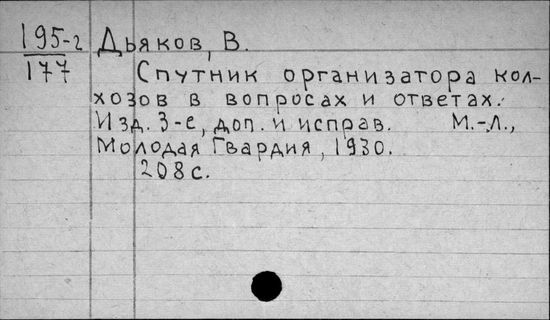 195-г Дьяков, В.
177
Спутник организатора кол-
хозов в вопросах и ответах.
Изд. 3-е, доп. и исправ. М.-Л.,
Молодая Гвардия, 1930.
208 с.